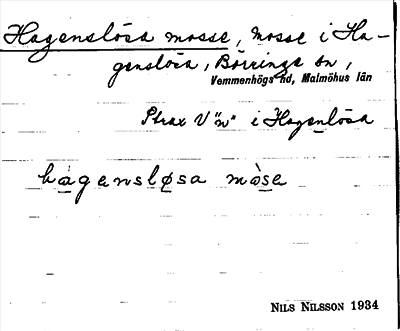 Hagenslösa mosse, mosse i Ha-
genslösa, Börringe sn,
Vemmenhögs hd, Malmöhus län
Strax V "n" i Hagenlösa
hagensløsa màse
NILS NILSSON 1934